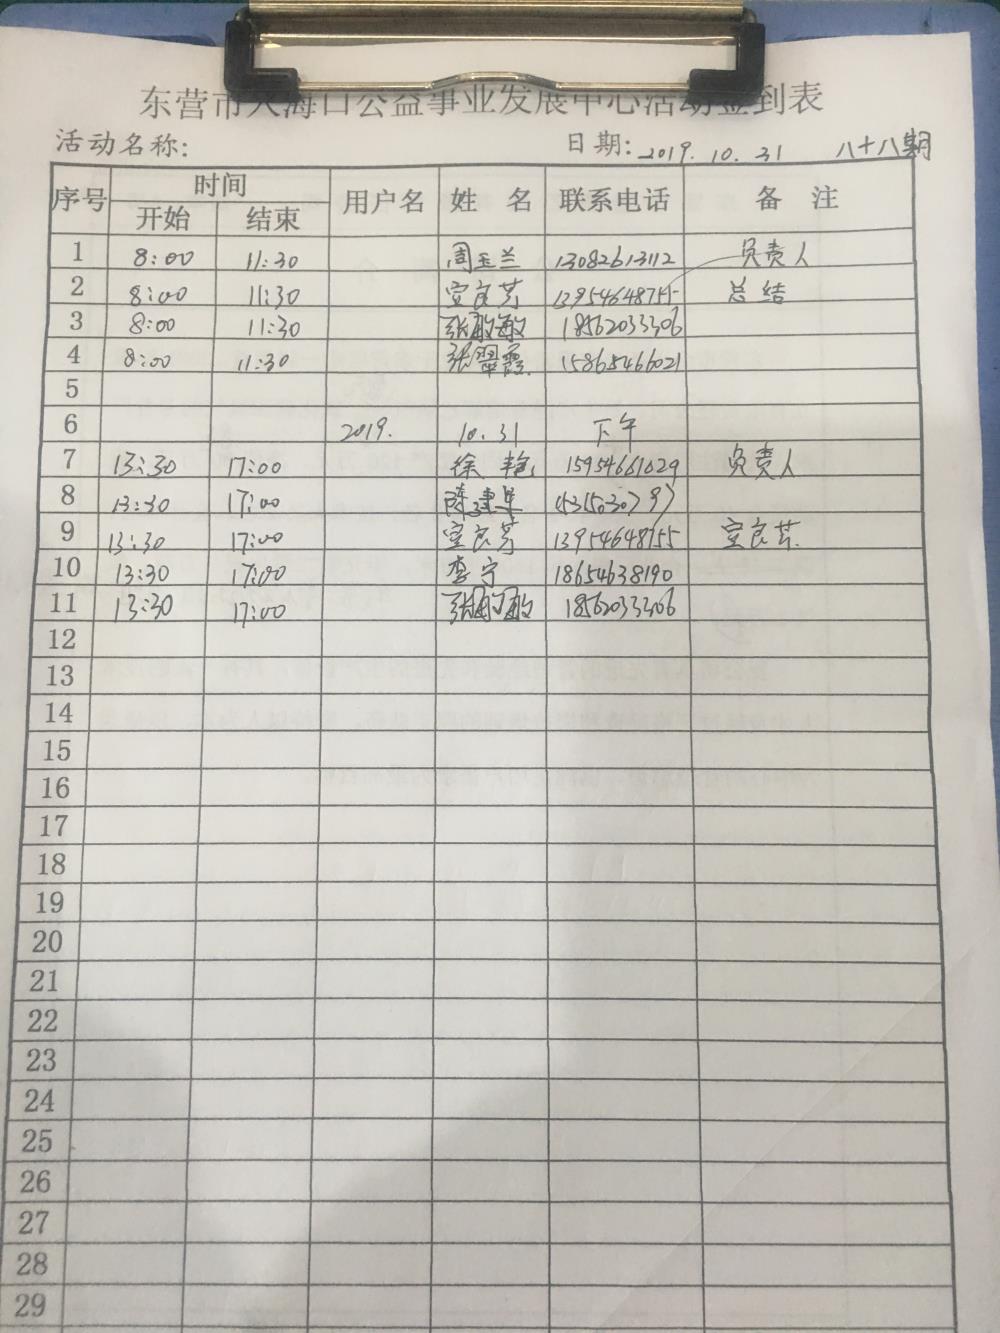 东营市入海口公益事业发展中心活动签到表
活动名称: 日期: 2019. 10. 31 八十八期
序号 时间 用户名 姓 名 联系电话 备 注
开始 结束
1 8:00 11:30 周玉兰 13082613112 负责人
2 8:00 11:30 宣良芳 13954648755 总结
3 8:00 11:30 张敏敏 18562033306
4 8:00 11:30 张翠霞 15865466021
5
6 2019. 10. 31 下午
7 13:30 17:00 徐艳 15954661029 负责人
8 13:30 17:00 陈建
9 13:30 17:00 宣良芳 13954648755 宣良芳
10 13:30 17:00 李宁 18654638190
11 13:30 17:00 张敏敏 18562033306
12
13
14
15
16
17
18
19
20
21
22
23
24
25
26
27
28
29